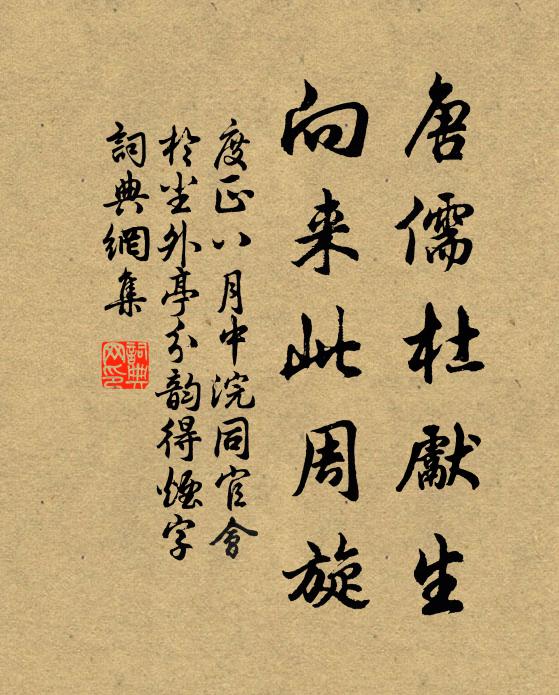 唐儒杜獻生
向来此周旋
度正八月中浣同官會
於尘外亭分韵得煙字
詞典網集
詞典网印